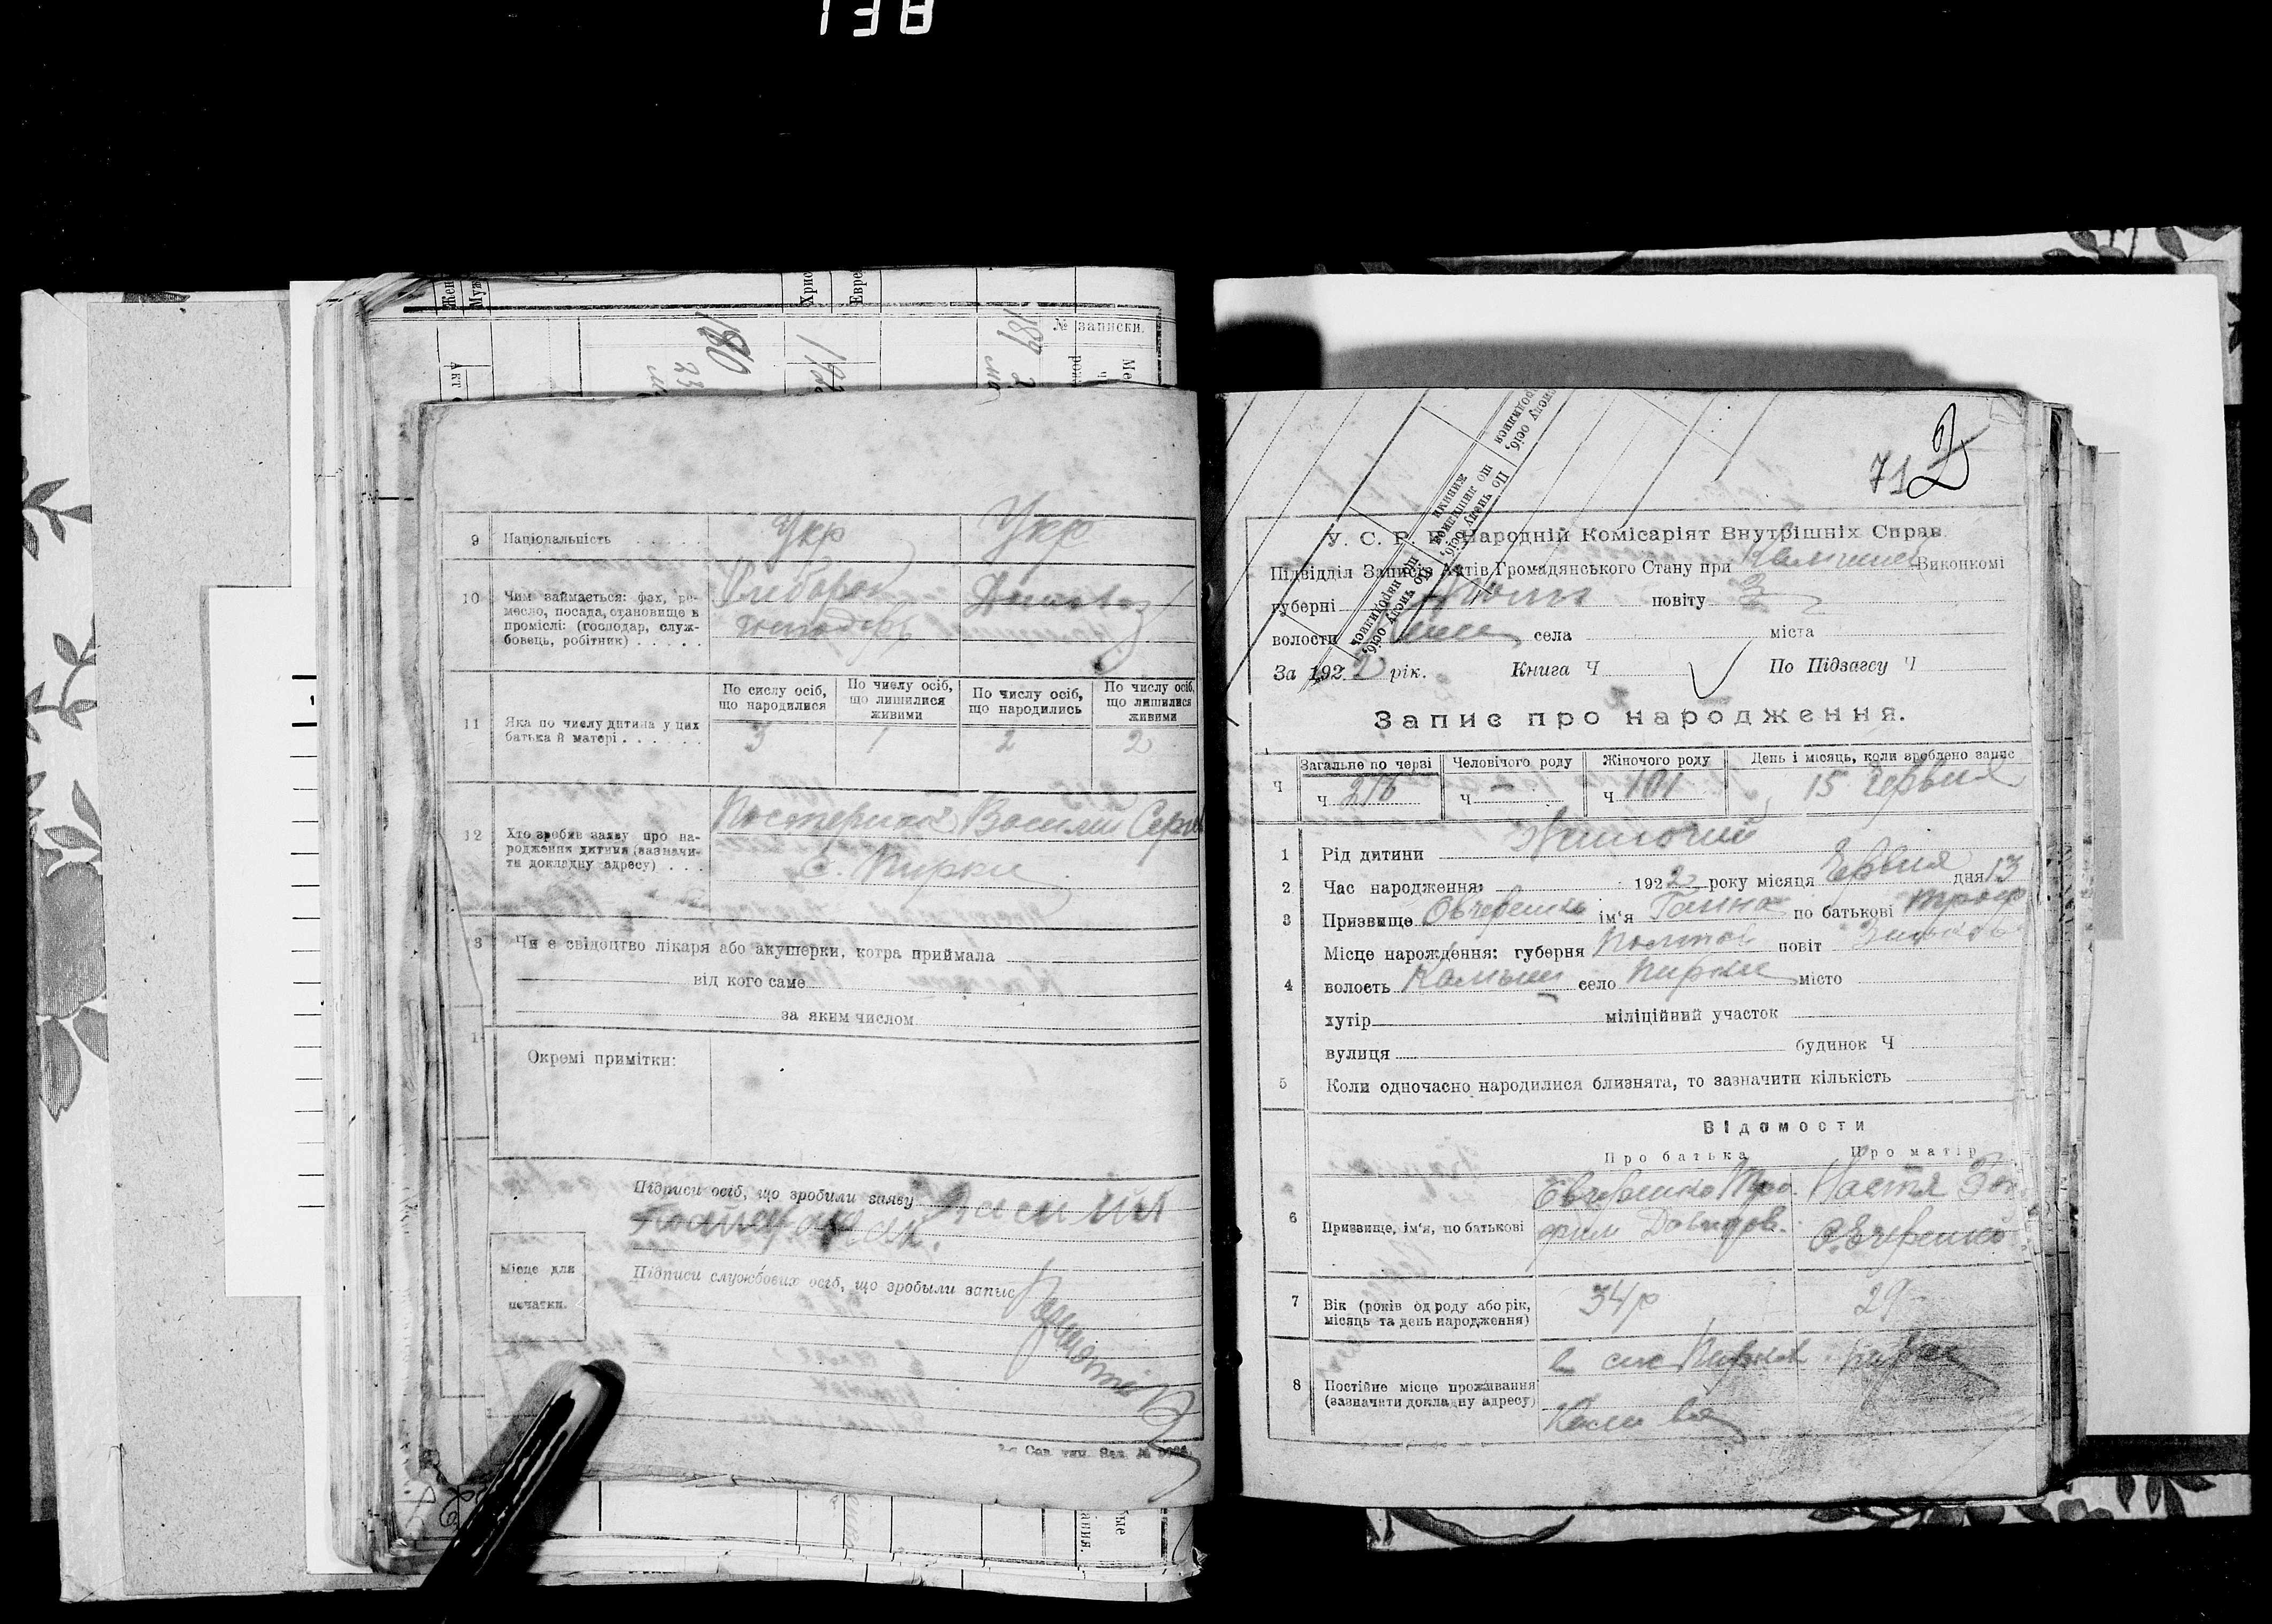 138
Жен
Муж
Хрис
Евре
№ записки.
180
189
9 Національність . . . . . Укр Укр
10 Чим займається: фах, ремесло, посада, становище в промислі: (господар, службовець, робітник) . . . . . Хлібороб
господарь
11 Яка по числу дитина у цих батька й матері . . . . . .
По сислу осіб, що народилися
По числу осіб, що лишилися живими
По числу осіб, що народились
По числу осіб, що лишилися живими
3 1 2 2
12 Хто зробив заяву про народження дитини (зазначити докладну адресу) . . .
Василь
с. Пирки
3 Чи є свідоцтво лікаря або акушерки, котра приймала
від кого саме
за яким числом
Окремі примітки:
Підписи осіб, що зробили заяву Василий
Місце для печатки.
Підписи службових осіб, що зробыли запис
71 2
У. С. Р. Р. Народній Комісаріят Внутрішніх Справ.
Підвідділ Записів Актів Громадянського Стану при Виконкомі
губерні Полт повіту З
волости села міста
За 1922 рік. Книга Ч По Підзагсу Ч
Запис про народження.
Загальне по черзі Человічого роду Жіночого роду День і місяць, коли зроблено запис
Ч Ч 216 Ч — Ч 101 15 Червня
1 Рід дитини Жиночий
2 Час народження: 1922 року місяця Червня дня 13
3 Призвище Овчеренко ім'я Ганна по батькові Троф
Місце нарождення: губерня Полтав повіт Зиньків
4 волость Камыш село Пирки місто
хутір міліційний участок
вулиця будинок Ч
5 Коли одночасно народилися близнята, то зазначити кількість
Відомости
Про батька Про матір
6 Призвище, ім'я, по батькові
Овчеренко Тро- Настя
фим Давидов. Овчеренко
7 Вік (років од роду або рік, місяць та день народження) 34 р 29
8 Постійне місце проживання (зазначити докладну адресу)
в селе Пирках Пирки